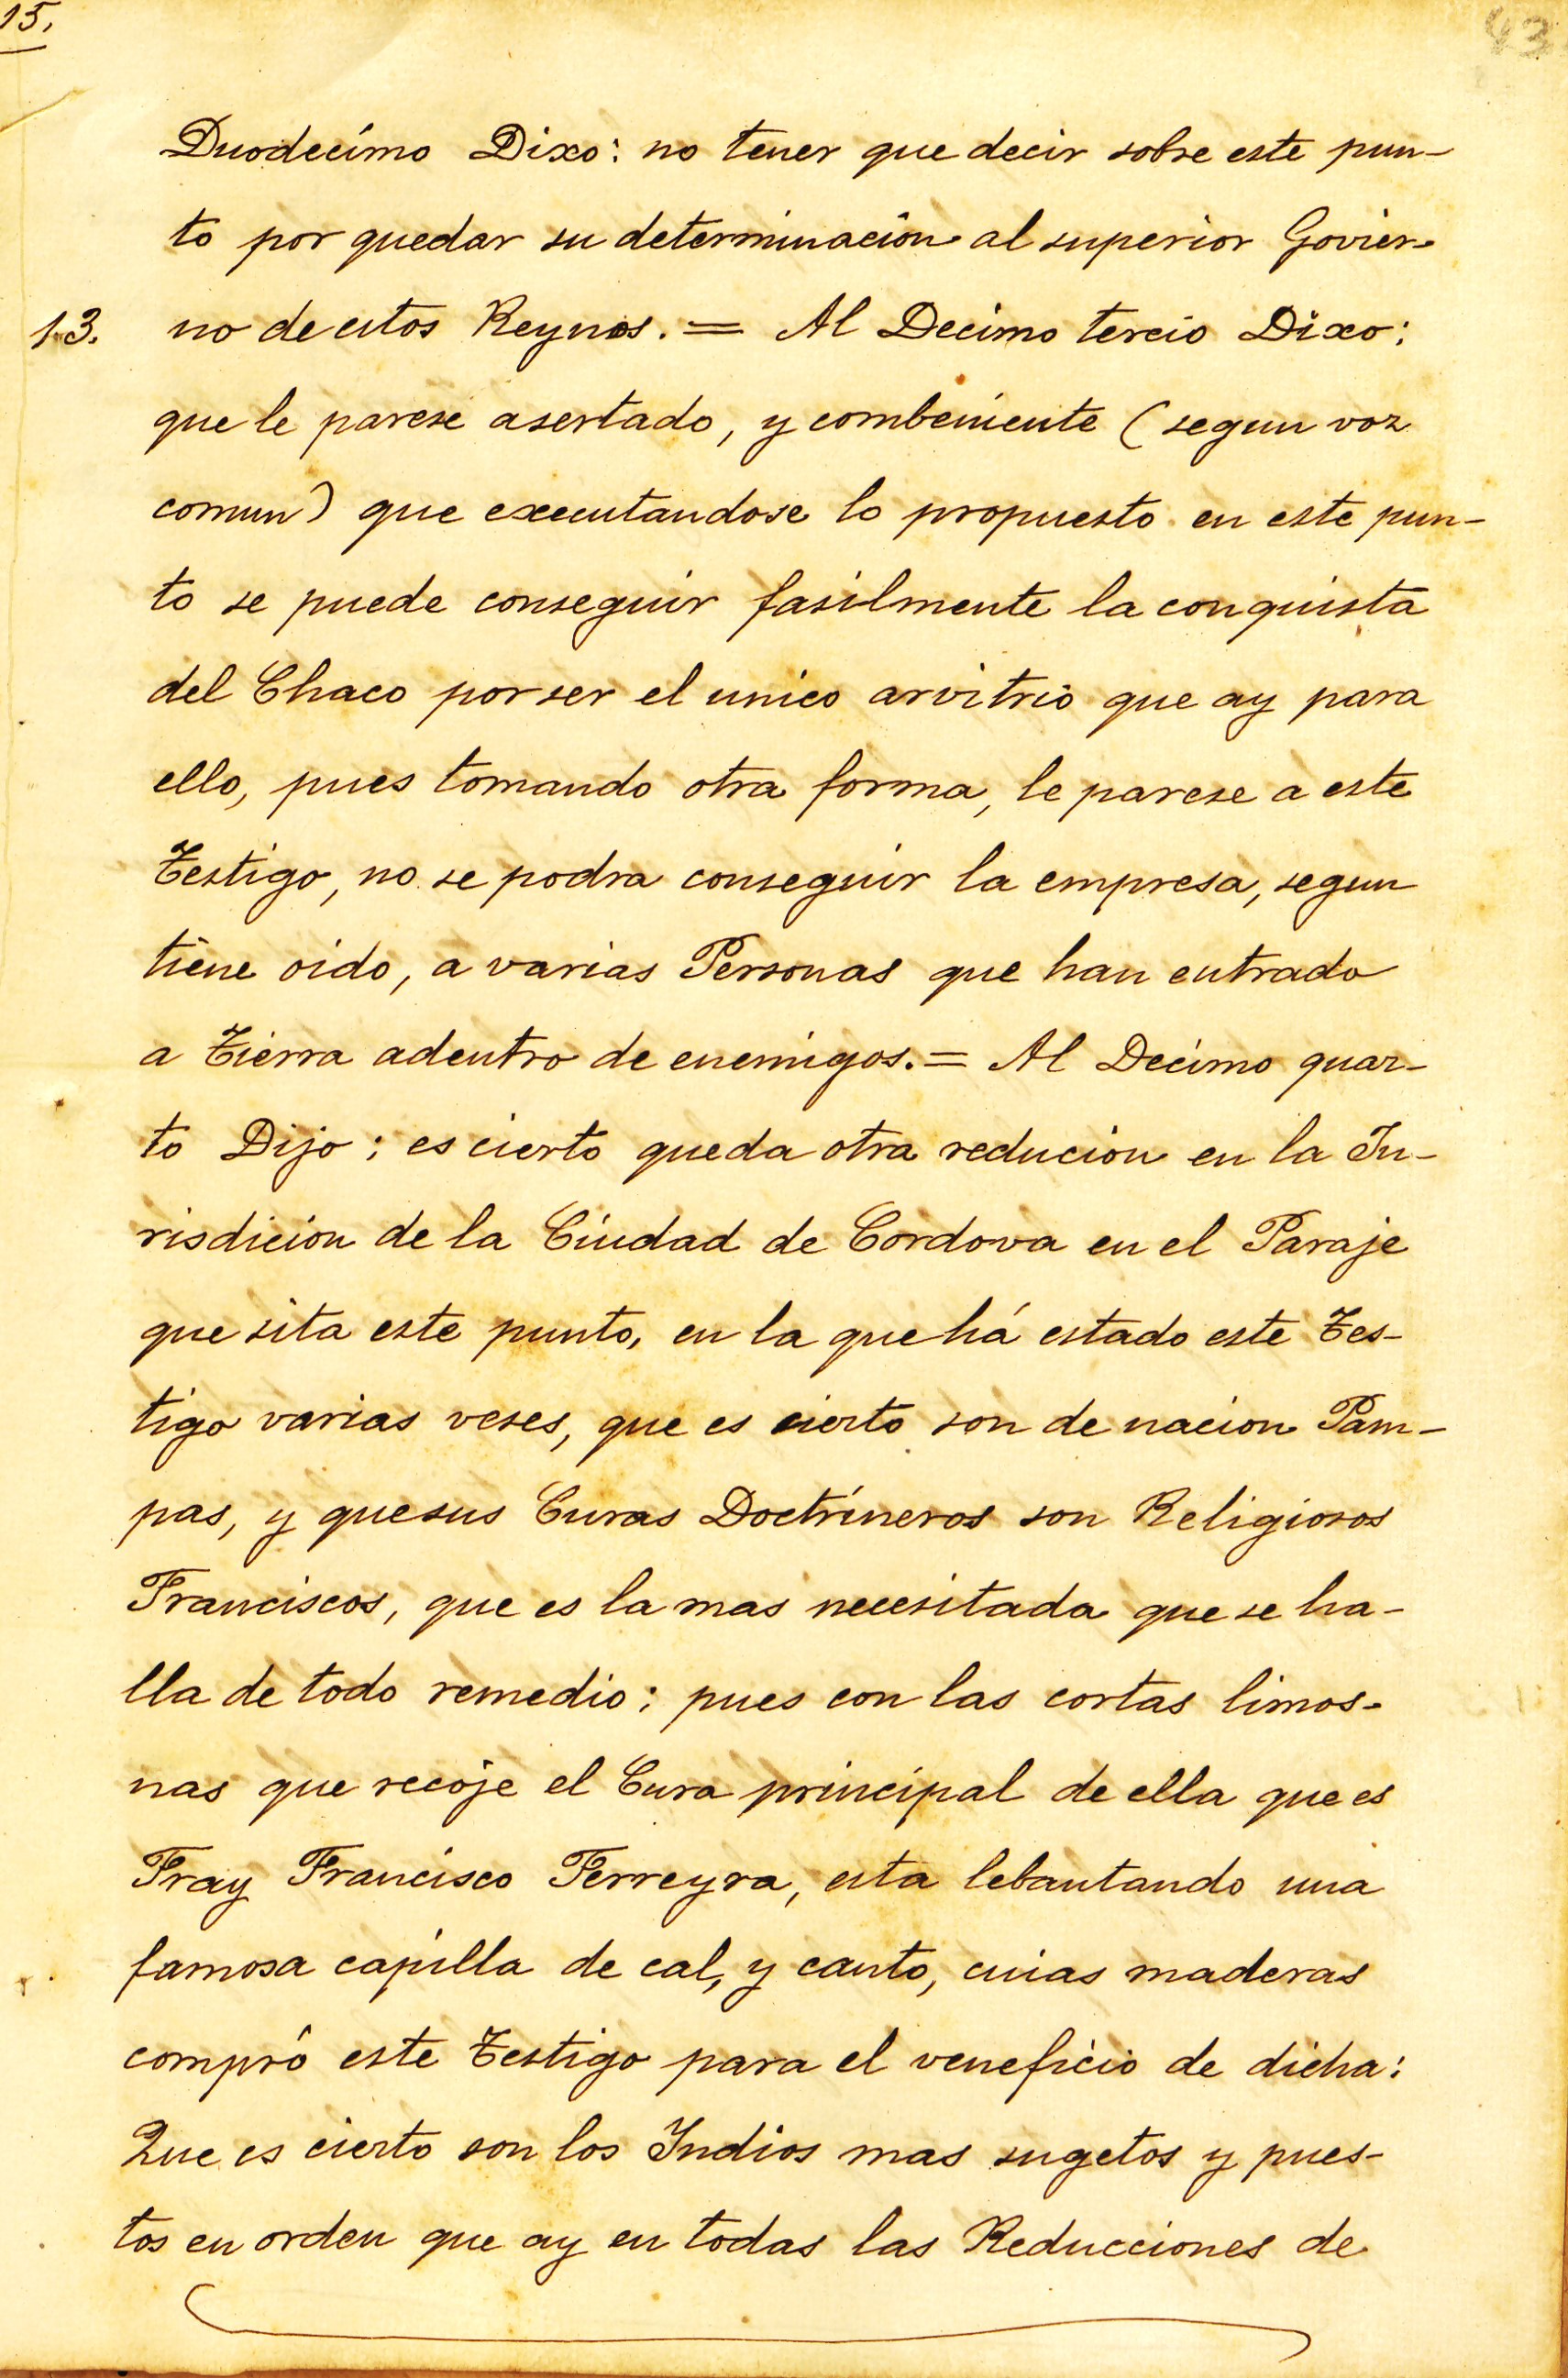 15.
43
Duodecimo Dixo: no tener que decir sobre este pun-
to por quedar su determinación al superior Govier-
13. no de estos Reynos. = Al Decimo tercio Dixo:
que le parese asertado, y combeniente (segun voz
comun) que executandose lo propuesto en este pun-
to se puede conseguir fasilmente la conquista
del Chaco por ser el unico arvitrio que ay para
ello, pues tomando otra forma, le parese a este
Testigo, no se podra conseguir la empresa, segun
tiene oido, a varias Personas que han entrado
a Tierra adentro de enemigos. = Al Decimo quar-
to Dijo: es cierto queda otra reducion en la Ju-
risdicion de la Ciudad de Cordova en el Paraje
que sita este punto, en la que há estado este Tes-
tigo varias veses, que es cierto son de nacion Pam-
pas, y que sus Curas Doctrineros son Religiosos
Franciscos, que es la mas necesitada que se ha-
lla de todo remedio: pues con las cortas limos-
nas que recoje el Cura principal de ella que es
Fray Francisco Ferreyra, esta lebantando una
famosa capilla de cal, y canto, cuias maderas
compró este Testigo para el veneficio de dicha:
Que es cierto son los Indios mas sugetos y pues-
tos en orden que ay en todas las Reducciones de